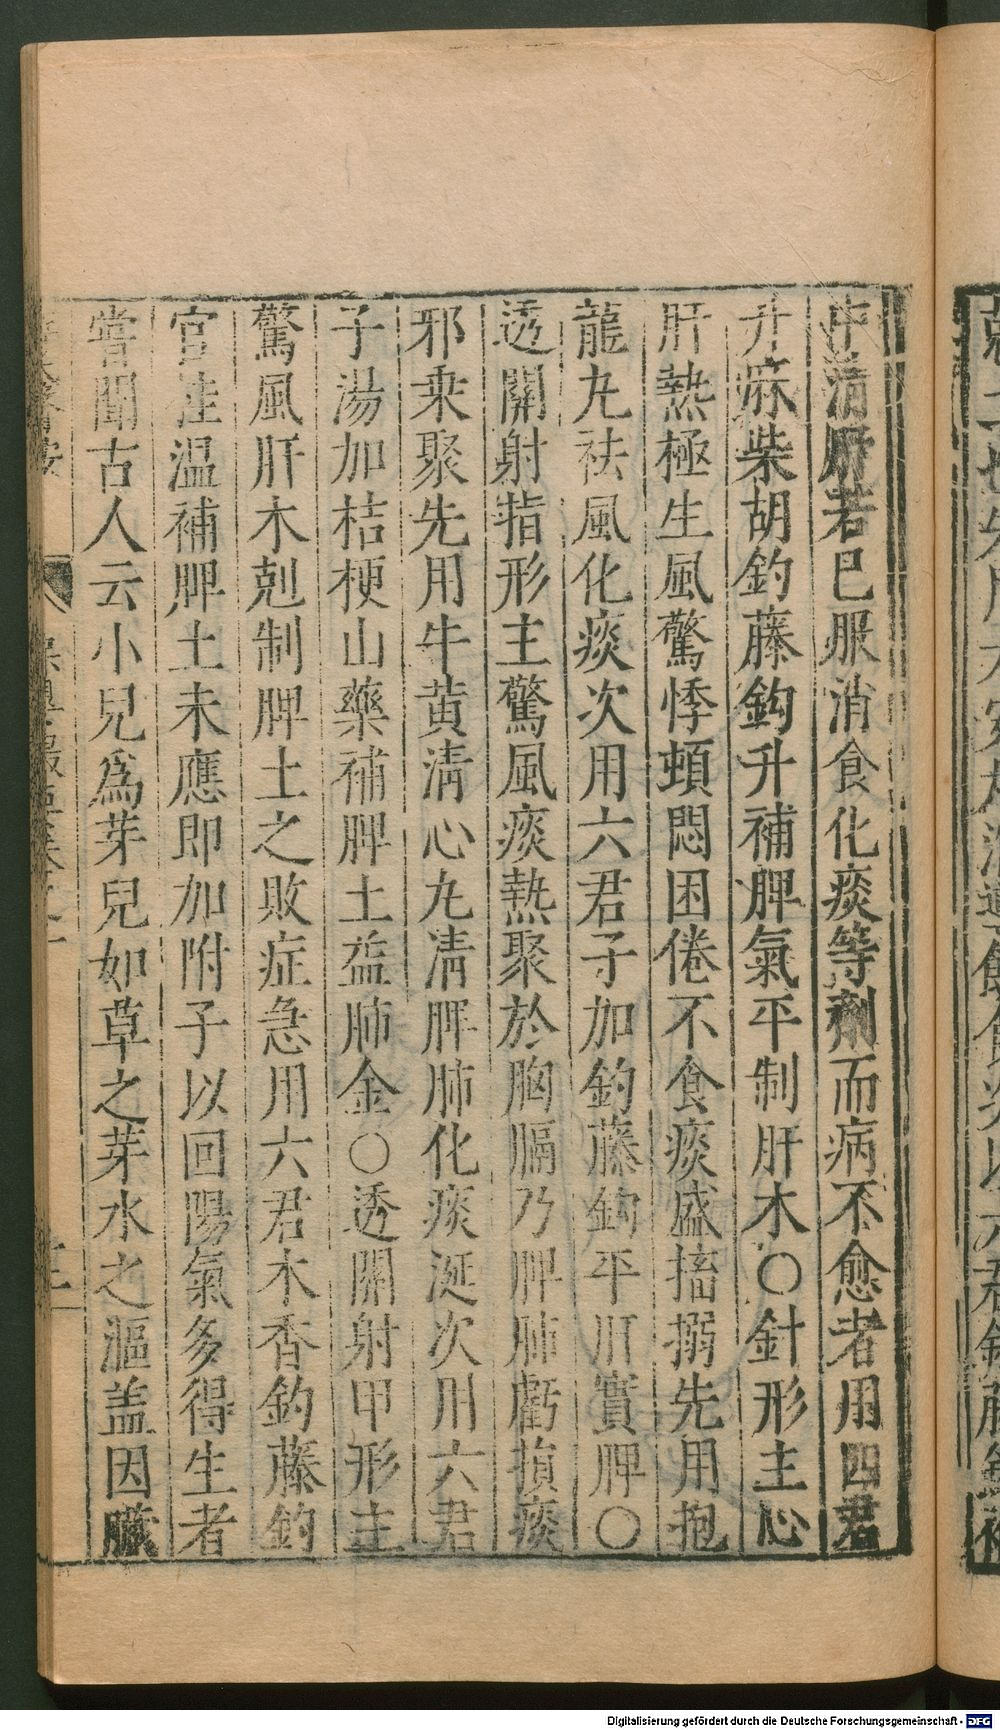 中清肝若已服消食化痰等劑而病不愈者用四君
升麻柴胡釣藤鈎升補脾氣平制肝木○針形主心
肝熱極生風驚悸頓悶困倦不食痰盛搐搦先用抱
龍丸祛風化痰次用六君子加釣藤鈎平肝實脾○
透關射指形主驚風痰熱聚於胸膈乃脾肺虧損痰
邪乗聚先用牛黄清心丸清脾肺化痰涎次用六君
子湯加桔梗山藥補脾土益肺金○透關射甲形主
驚風肝木剋制脾土之敗症急用六君木香釣藤釣
官桂温補脾土未應即加附子以回陽氣多得生者
嘗聞古人云小兒為芽兒如草之芽水之漚盖因臟
Digitalisierung gefördert durch die Deutsche Forschungsgemeinschaft - DFG